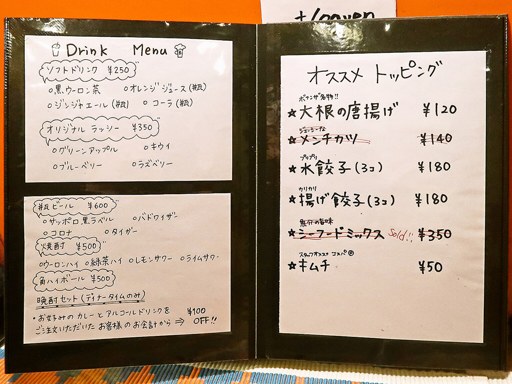 Drink Menu
ソフトドリンク ¥250
○黒ウーロン茶 ○オレンジジュース(瓶)
○ジンジャエール(瓶) ○コーラ(瓶)
オリジナル ラッシー ¥350
○グリーンアップル ○キウイ
○ブルーベリー ○ラズベリー
瓶ビール ¥600
○サッポロ黒ラベル ○バドワイザー
○コロナ ○タイガー
焼酎 ¥500
○ウーロンハイ ○緑茶ハイ ○レモンサワー ○ライムサワー
角ハイボール ¥500
晩酌セット(ディナータイムのみ)
・お好みのカレーとアルコールドリンクを
ご注文いただいたお客様のお会計から ⇒ ¥100 OFF!!
オススメ トッピング
★大根の唐揚げ ¥120
ジューシーな
★メンチカツ ¥140
プリプリ
★水餃子(3コ) ¥180
カリカリ
★揚げ餃子(3コ) ¥180
★シーフードミックス Sold!! ¥350
スタッフオススメ コスパ◎
★キムチ ¥50